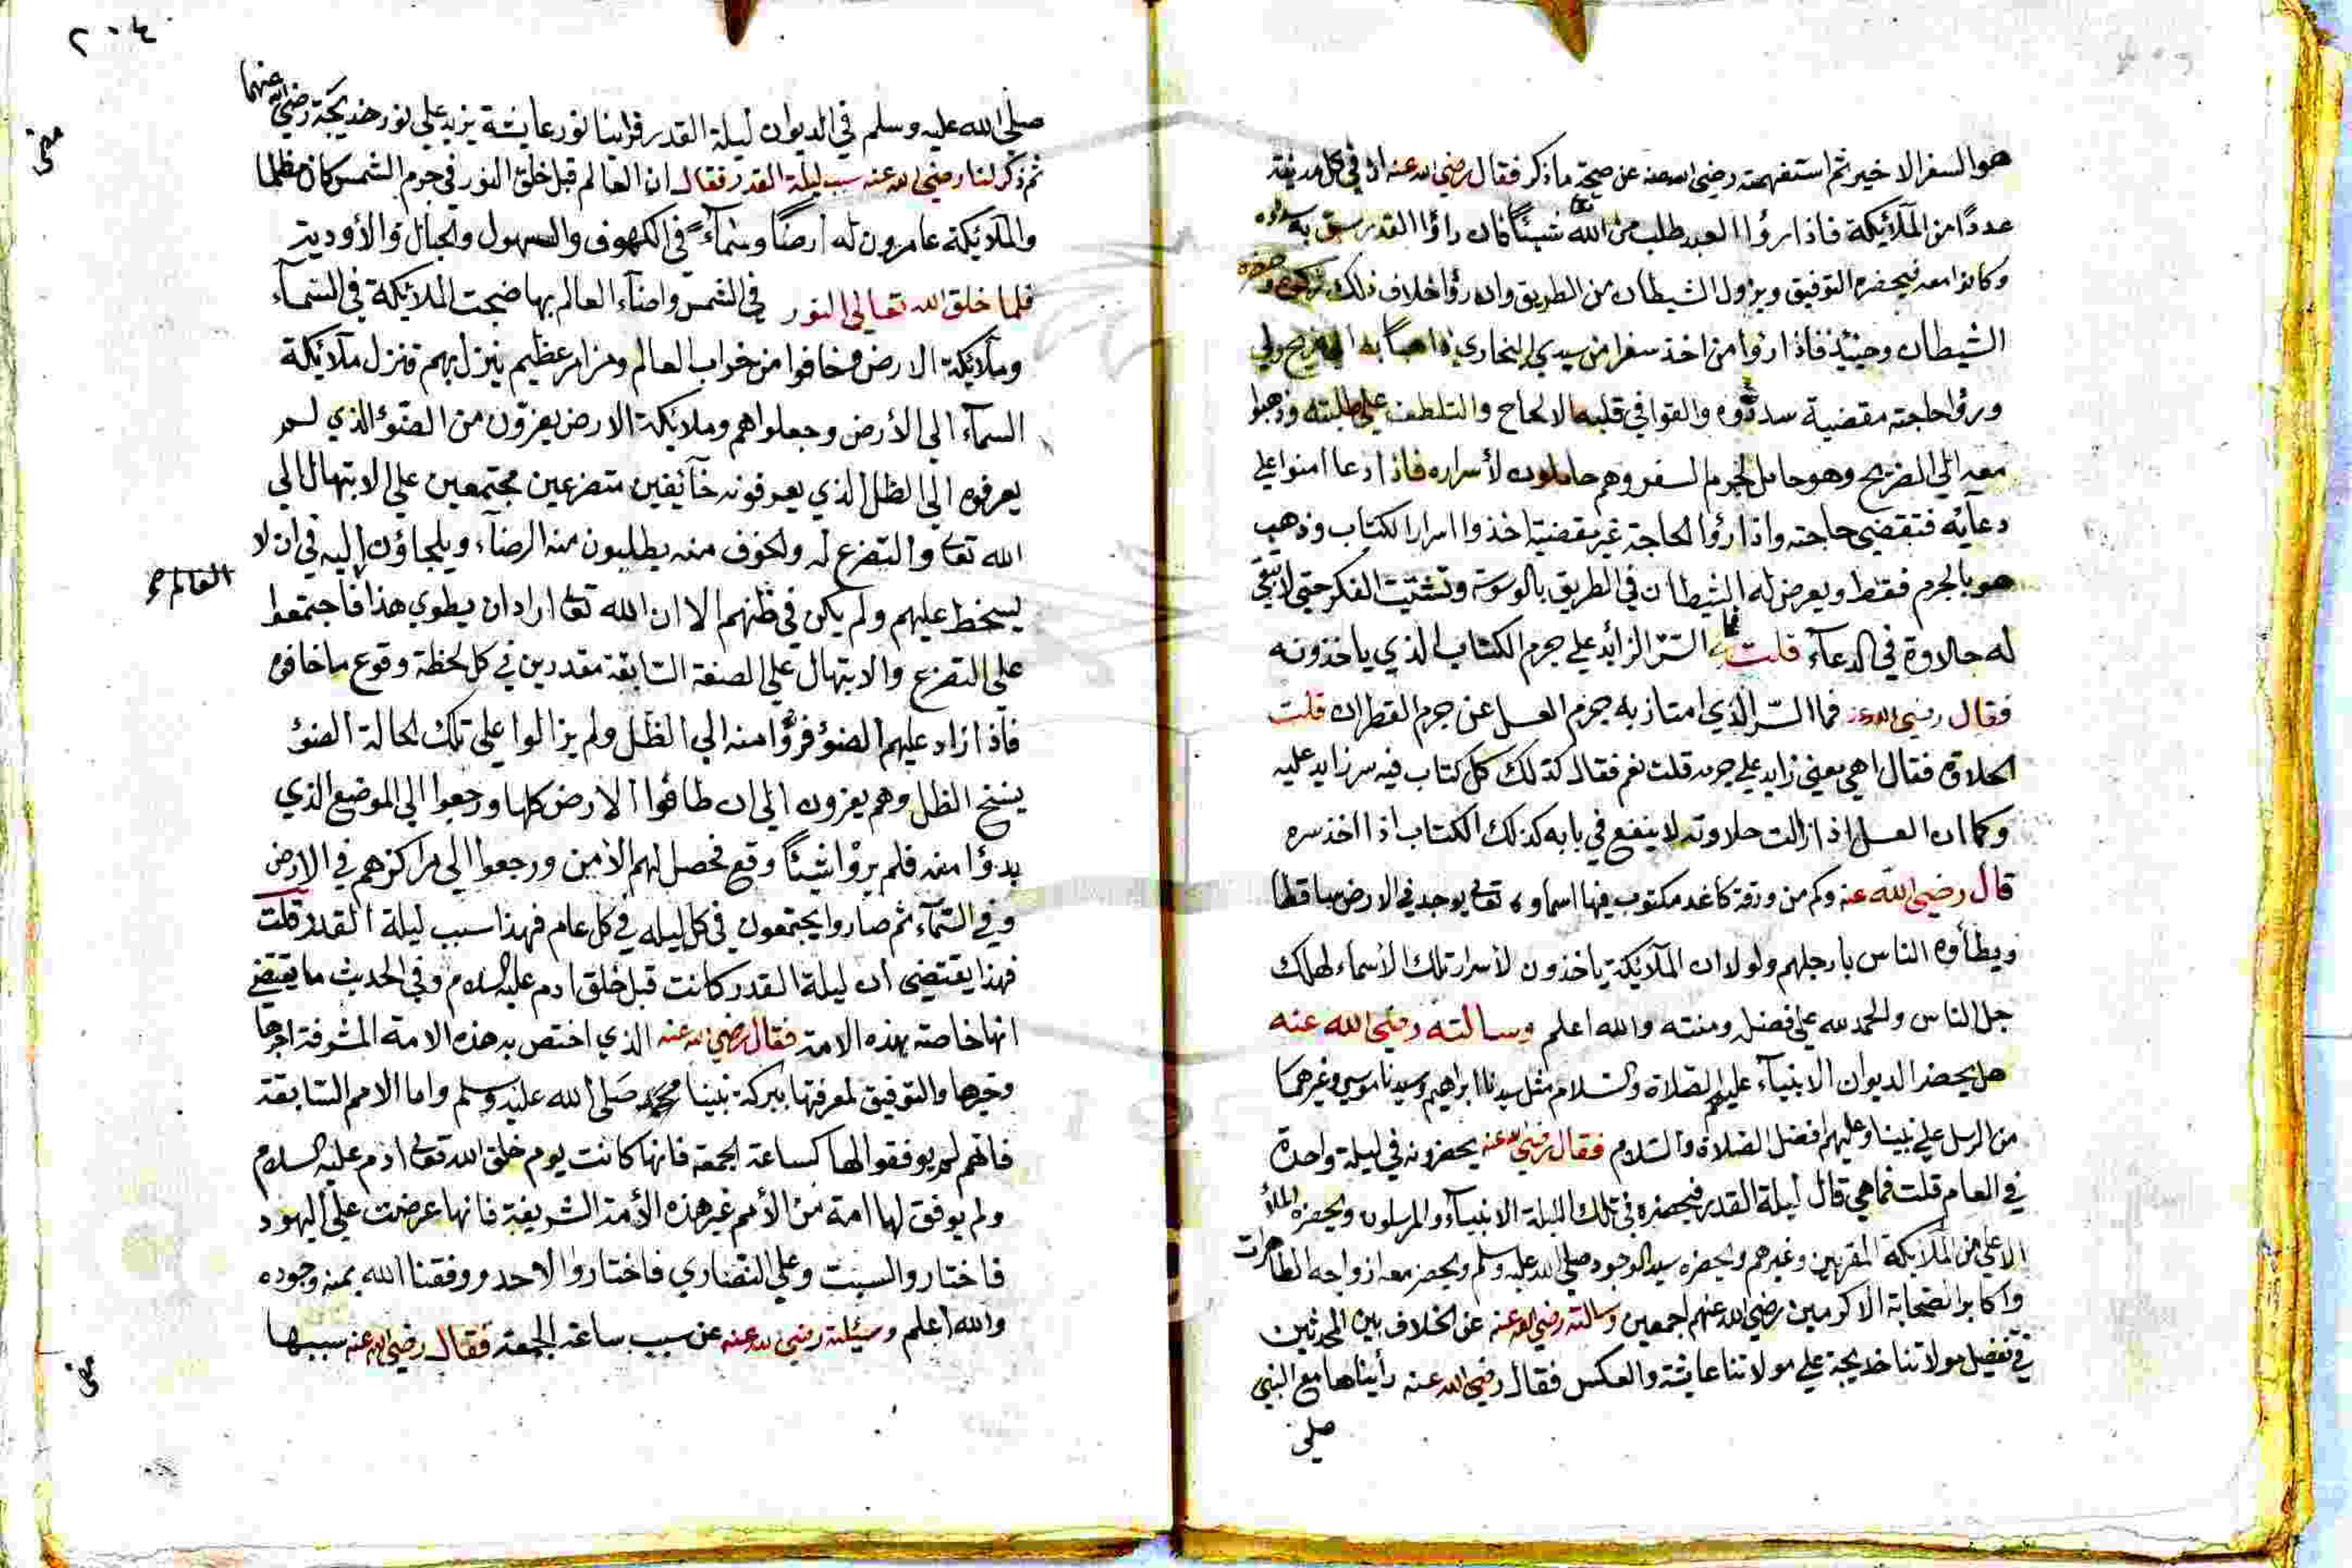 هو السفر الاخير ثم استفهمته رضي الله عنه عن صحة ما ذكر فقال رضي الله عنه ان في كل مدينة
عددًا من الملآئيكة فاذا رؤا العبد طلب من الله تعا شيئًا فان راؤا القدر سبق به سددوه
وكانوا معه فيحضره التوفيق ويزول الشيطان من الطريق وان رؤا خلاف ذلك تركوه وحضره
الشيطان وحينئذ فاذا رؤا من اخذ سفرا من سيدي البخاري ذاهبًا به الي ضريح ولي
ورؤا حاجته مقضية سددوه والقوا في قلبه الالحاح والتلطف علي طلبته وذهبوا
معه الي الضريح وهو حامل لجرم السفر وهم حاملون لأسراره فاذا دعا امنوا علي
دعآيه فتقضي حاجته واذا رؤا الحاجة غير مقضية اخذوا اسرار الكتاب وذهب
هو بالجرم فقط ويعرض له الشيطان في الطريق بالوسوسة وتشتيت الفكر حتي لا تبقي
له حلاوة في الدعآء قلت وما السّر الزائد علي جرم الكتاب الذي ياخذونه
فقال رضي الله عنه فما السّر الذي امتاز به جرم العسل عن جرم القطران قلت
الحلاوة فقال اهي معني زايد علي جرمه قلت نعم فقال كذلك كل كتاب فيه سر زايد عليه
وكما ان العسل اذا زالت حلاوته لا ينفع في بابه كذلك الكتاب اذا اخذ سره
قال رضي الله عنه وكم من ورقة كاغد مكتوب فيها اسماوه تعا يوجد في الارض ساقطا
ويطأوه الناس بارجلهم ولولا ان الملآئكة ياخذون لأسرار تلك الأسماء لهلك
جل الناس والحمد لله علي فضله ومنته والله اعلم وسالته رضي الله عنه
هل يحضر الديوان الانبيآء عليهم الصلاة والسلام مثل سيدنا ابراهيم وسيدنا موسي وغيرهما
من الرسل علي نبينا وعليهم افضل الصلاة والسلام فقال رضي الله عنه يحضرونه في ليلة واحدة
في العام قلت فما هي قال ليلة القدر فيحضره في تلك الليلة الانبيآء والمرسلون ويحضره الملأ
الاعلي من الملآيكة المقربين وغيرهم ويحضره سيد الوجود صلي الله عليه وسلم ويحضر معه ازواجه الطاهرات
واكابر الصحابة الاكرمين رضي الله عنهم اجمعين وسالته رضي الله عنه عن الخلاف بين المحدثين
في تفضيل مولاتنا خديجة علي مولاتنا عايشة والعكس فقال رضي الله عنه رأيناها مع النبي
صلي
٢٠٤
صلي الله عليه وسلم في الديوان ليلة القدر فراينا نور عايشة يزيد علي نور خديجة رضي الله عنهما
ثم ذكر لنا رضي الله عنه سبب ليلة القدر فقال ان العالم قبل خلق النور في جرم الشمس كان مظلما
والملآئيكة عامرون له ارضًا وسمآءً في الكهوف والسهول والجبال والأودية
فلما خلق الله تعالي النور في الشمس واضآء العالم بها ضجت الملائيكة في السّمآء
وملآئيكة الارض وخافوا من خراب العالم ومن امر عظيم ينزل بهم فنزل ملآئيكة
السمآء الي الأرض وجعلوا هم وملائيكة الارض يفرّون من الضّوء الذي لم
يعرفوه الي الظل الذي يعرفونه خآئفين متضرعين مجتمعين علي الابتهال الي
الله تعا والتضرع له والخوف منه يطلبون منه الرضآء ويلجاؤن اليه في ان لا
يسخط عليهم ولم يكن في ظنهم الا ان الله تعا اراد ان يطوي هذا فاجتمعوا
العالم
علي التضرع والابتهال علي الصفة السّابقة مقدرين في كل لحظة وقوع ما خافوه
فاذا زاد عليهم الضوء فرّوا منه الي الظل ولم يزالوا علي تلك الحالة الضوء
ينسخ الظل وهم يفرون الي ان طافوا الارض كلها ورجعوا الي الموضع الذي
بدؤا منه فلم يرؤا شيئًا وقع فحصل لهم الأمن ورجعوا الي مراكزهم في الارض
وفي السّمآء ثم صاروا يجتمعون في كل ليله في كل عام فهذا سبب ليلة القدر قلت
فهذا يقتضي ان ليلة القدر كانت قبل خلق ادم عليه السلام وفي الحديث ما يقتضي
انها خاصة بهذه الامة فقال رضي الله عنه الذي اختص به هذه الامة المشرفة اجرها
وخيرها والتوفيق لمعرفتها ببركة نبينا محمد صَلي الله عليه وسلم واما الامم السّابقة
فانهم لم يوفقوا لها كساعة الجمعة فانها كانت يوم خلق الله تعا ادم عليه السلام
ولم يوفق لها امة من الأمم غير هذه الأمة الشريفة فانها عرضت علي اليهود
فاختاروا السبت وعلي النصاري فاختاروا الاحد ووفقنا الله بمنه وجوده
والله اعلم وسئلته رضي الله عنه عن سبب ساعة الجمعة فقال رضي الله عنه سببها